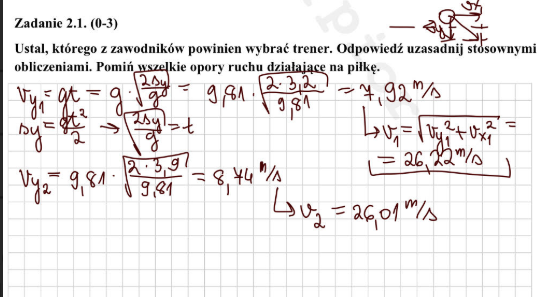 Zadanie 2.1. (0-3)
Ustal, którego z zawodników powinien wybrać trener. Odpowiedź uzasadnij stosownymi
obliczeniami. Pomiń wszelkie opory ruchu działające na piłkę.
Vy₁ = gt = g · √(2sy/g) = 9,81 · √(2·3,2/9,81) = 7,92 m/s
sy = gt²/2 → √(2sy/g) = t
↳ v₁ = √(vy₁² + vx₁²) =
= 26,22 m/s
Vy₂ = 9,81 · √(2·3,9/9,81) = 8,74 m/s
↳ v₂ = 26,01 m/s